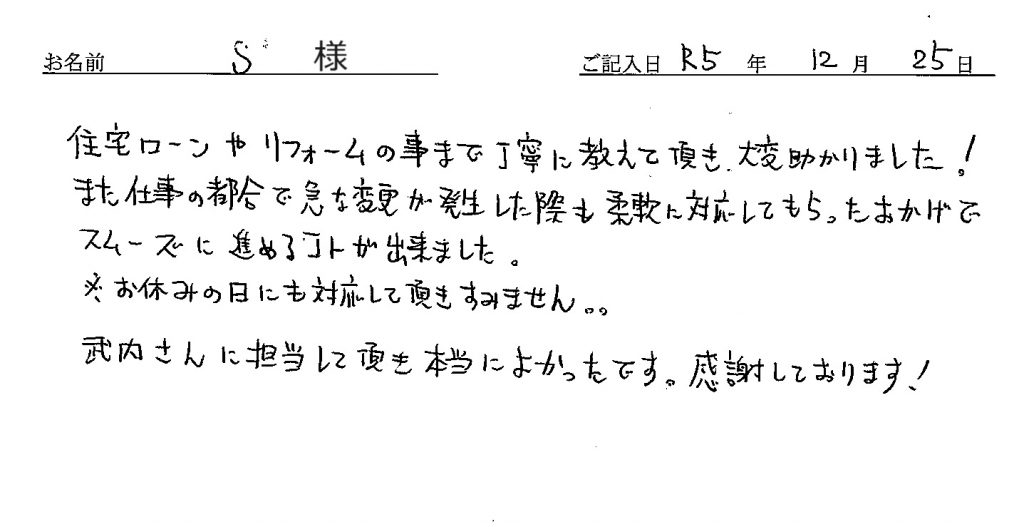 お名前 S 様 ご記入日 R5 年 12 月 25 日
住宅ローンやリフォームの事まで丁寧に教えて頂き、大変助かりました!
また仕事の都合で急な変更が発生した際も柔軟に対応してもらったおかげで
スムーズに進めるコトが出来ました。
※お休みの日にも対応して頂きすみません。。
武内さんに担当して頂き本当によかったです。感謝しております!